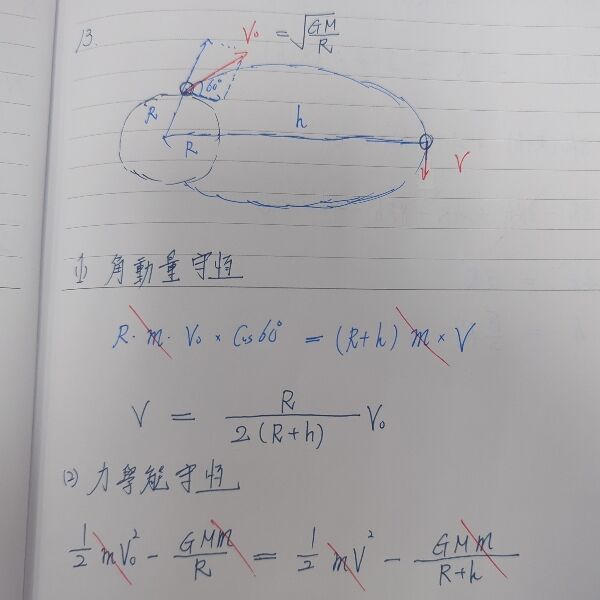 13.
V₀ = √(GM/R)
60°
R
R
h
V
(1) 角動量守恆
R · m · V₀ × Cos60° = (R+h) m × V
V = R / 2(R+h) V₀
(2) 力學能守恆
1/2 mV₀² - GMm/R = 1/2 mV² - GMm/R+h